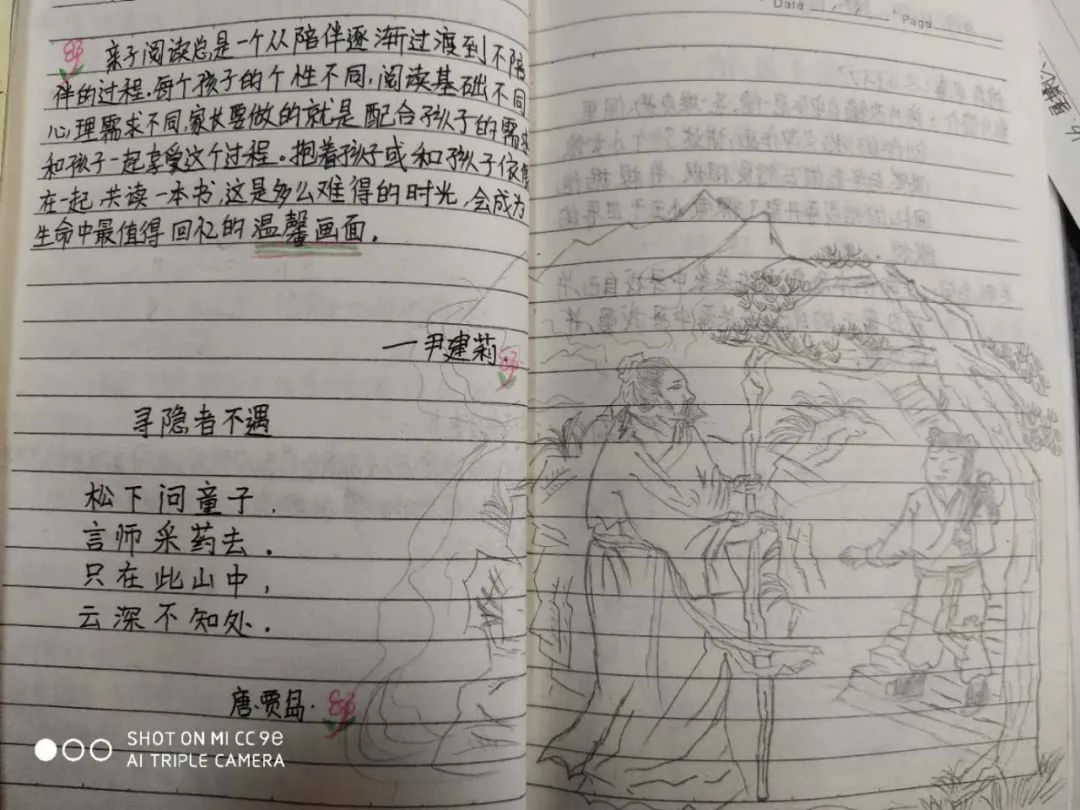 亲子阅读总是一个从陪伴逐渐过渡到不陪
伴的过程.每个孩子的个性不同,阅读基础不同
心理需求不同,家长要做的就是配合孩子的需求
和孩子一起享受这个过程。抱着孩子或和孩子依偎
在一起,共读一本书,这是多么难得的时光,会成为
生命中最值得回忆的温馨画面.
—尹建莉.
寻隐者不遇
松下问童子.
言师采药去.
只在此山中,
云深不知处.
唐·贾岛.
Date
Page
SHOT ON MI CC 9e
AI TRIPLE CAMERA